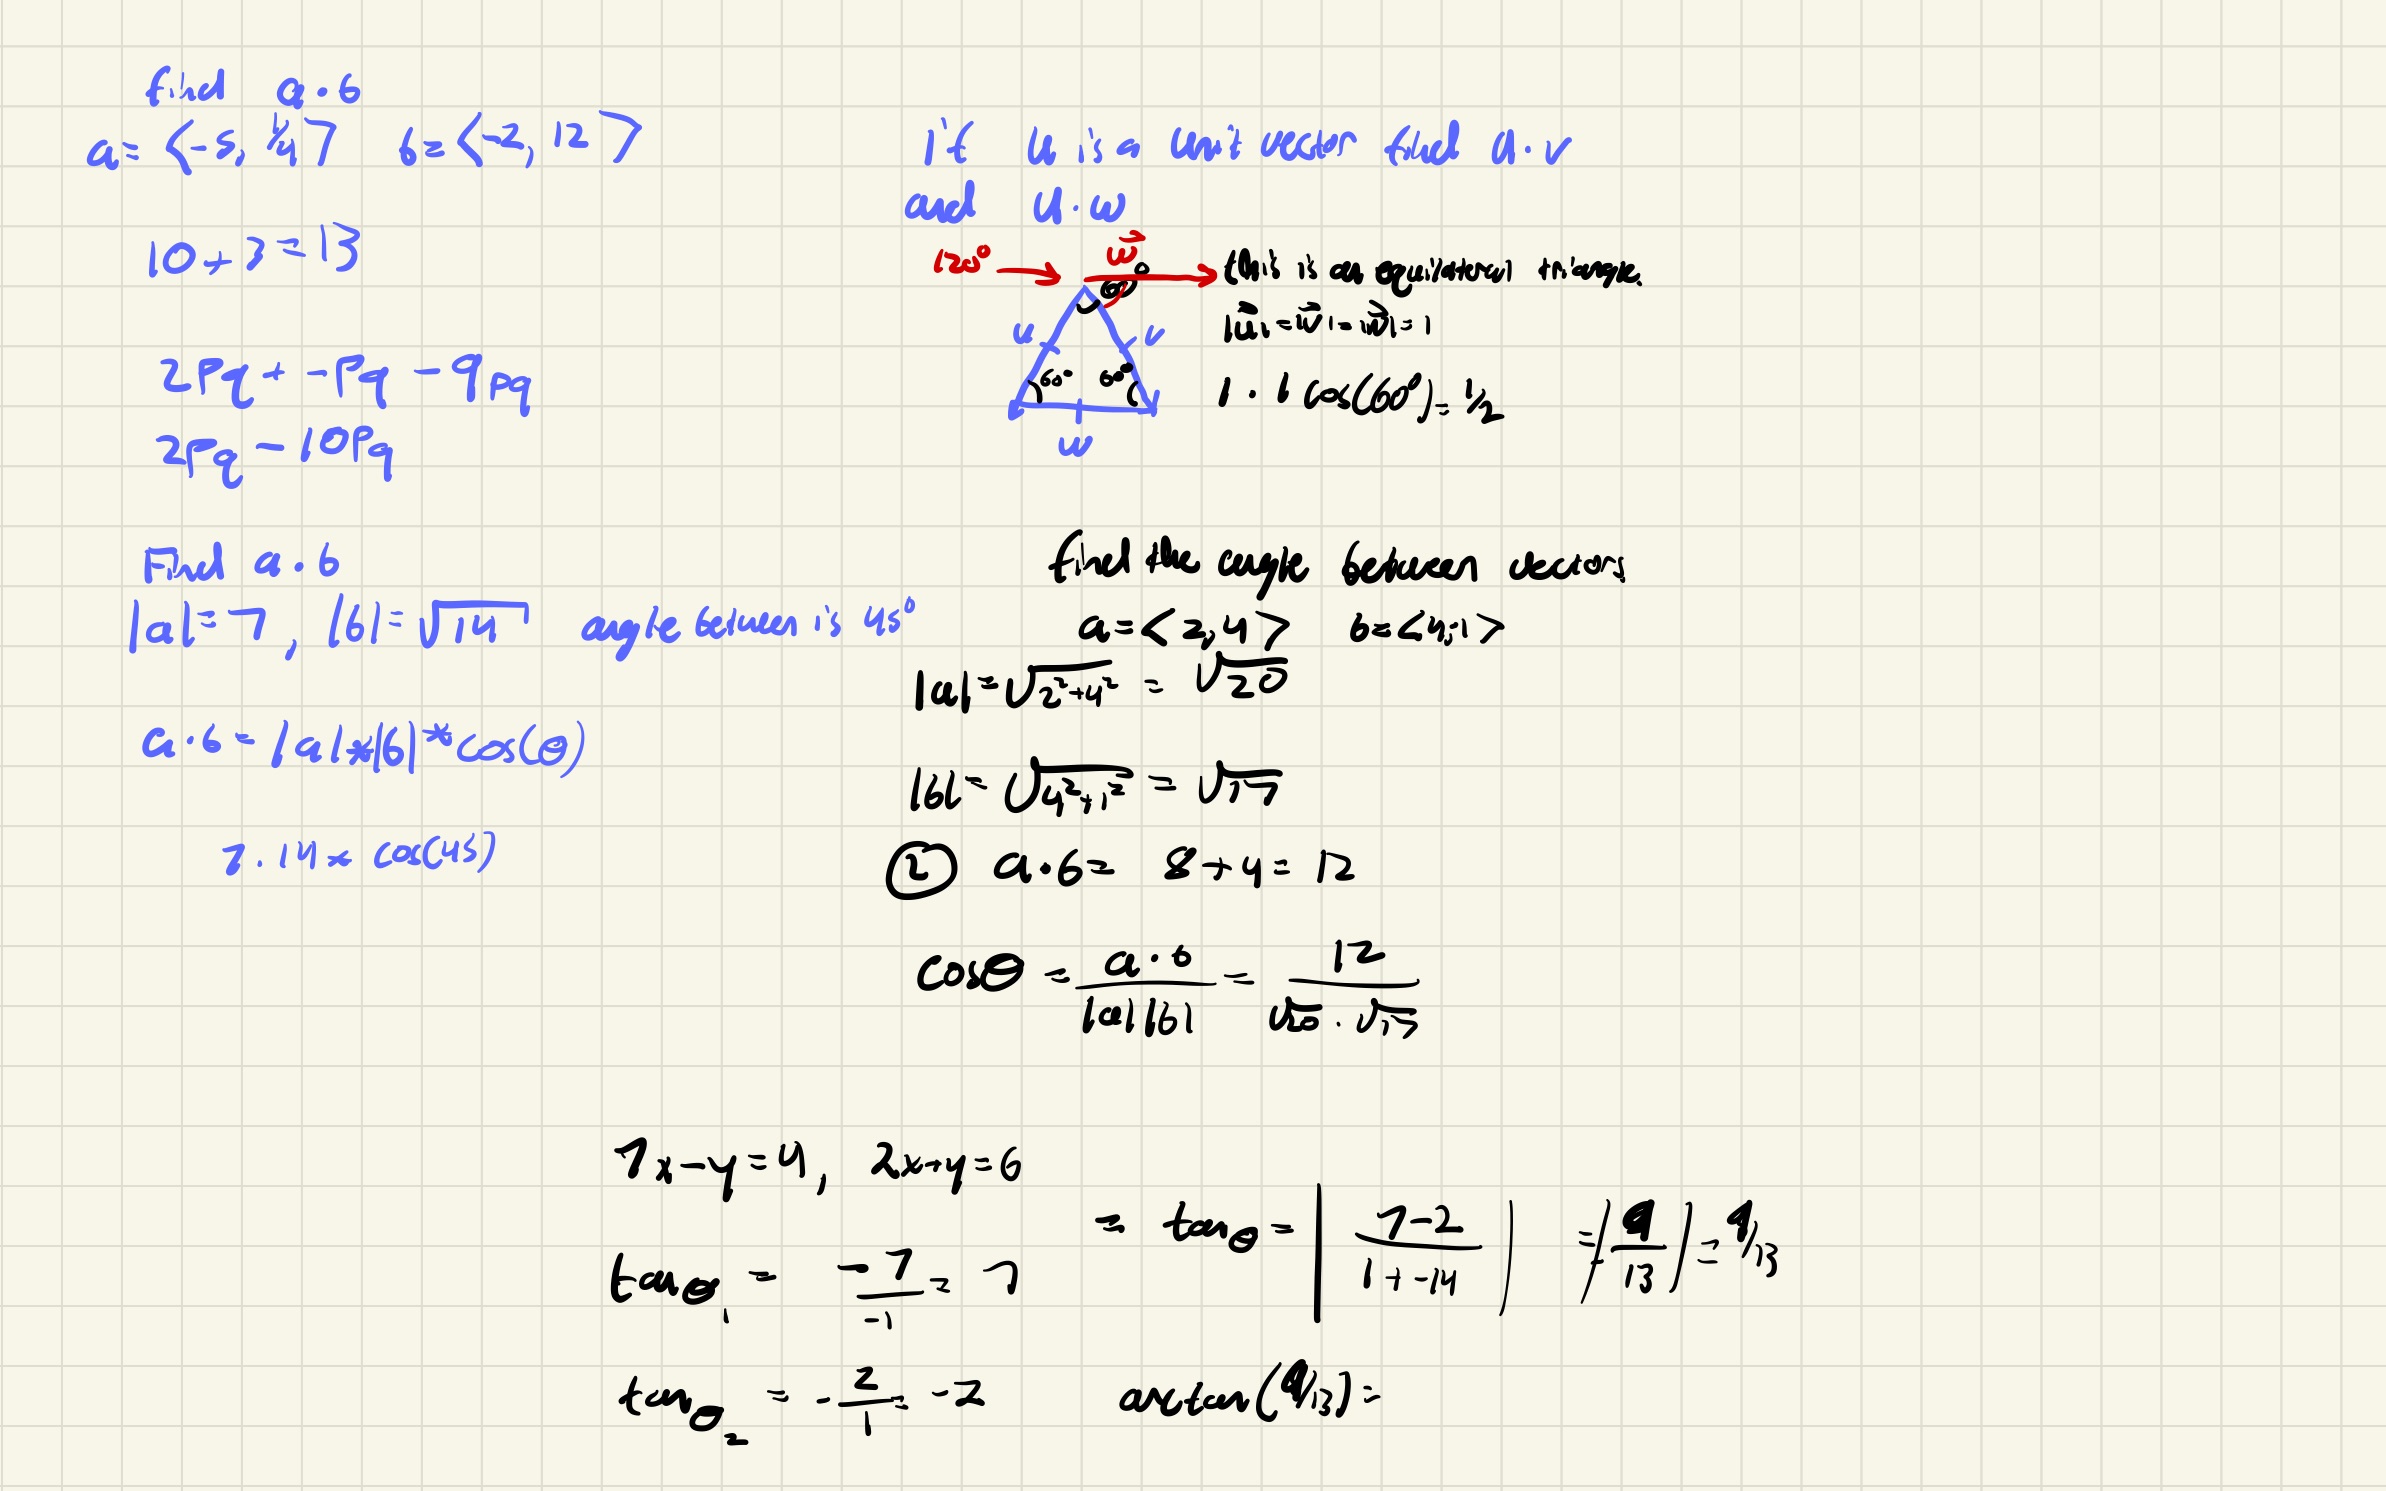 find a·b
a= <-5, 1/4> b= <-2, 12>
10+3=13
2Pq + -Pq - 9pq
2Pq - 10Pq
Find a·b
|a|=7, |b|=√14 angle between is 45°
a·b= |a|*|b|*cos(θ)
7·14* cos(45)
if u is a unit vector find u·v
and u·w
120° w 60°
this is an equilateral triangle.
|u|=|v|=|w|=1
u v
60° 60°
w
1·1 cos(60°)=1/2
find the angle between vectors
a=<2,4> b=<4,-1>
|a|=√2²+4² = √20
|b|= √4²+1² = √17
② a·b= 8+4= 12
cosθ = a·b/|a||b| = 12/√20·√17
7x-y=4, 2x+y=6
tanθ₁ = -7/-1 = 7
tanθ₂ = -2/1 = -2
= tanθ= |7-2/1+-14| =|9/13|=9/13
arctan(9/13)=